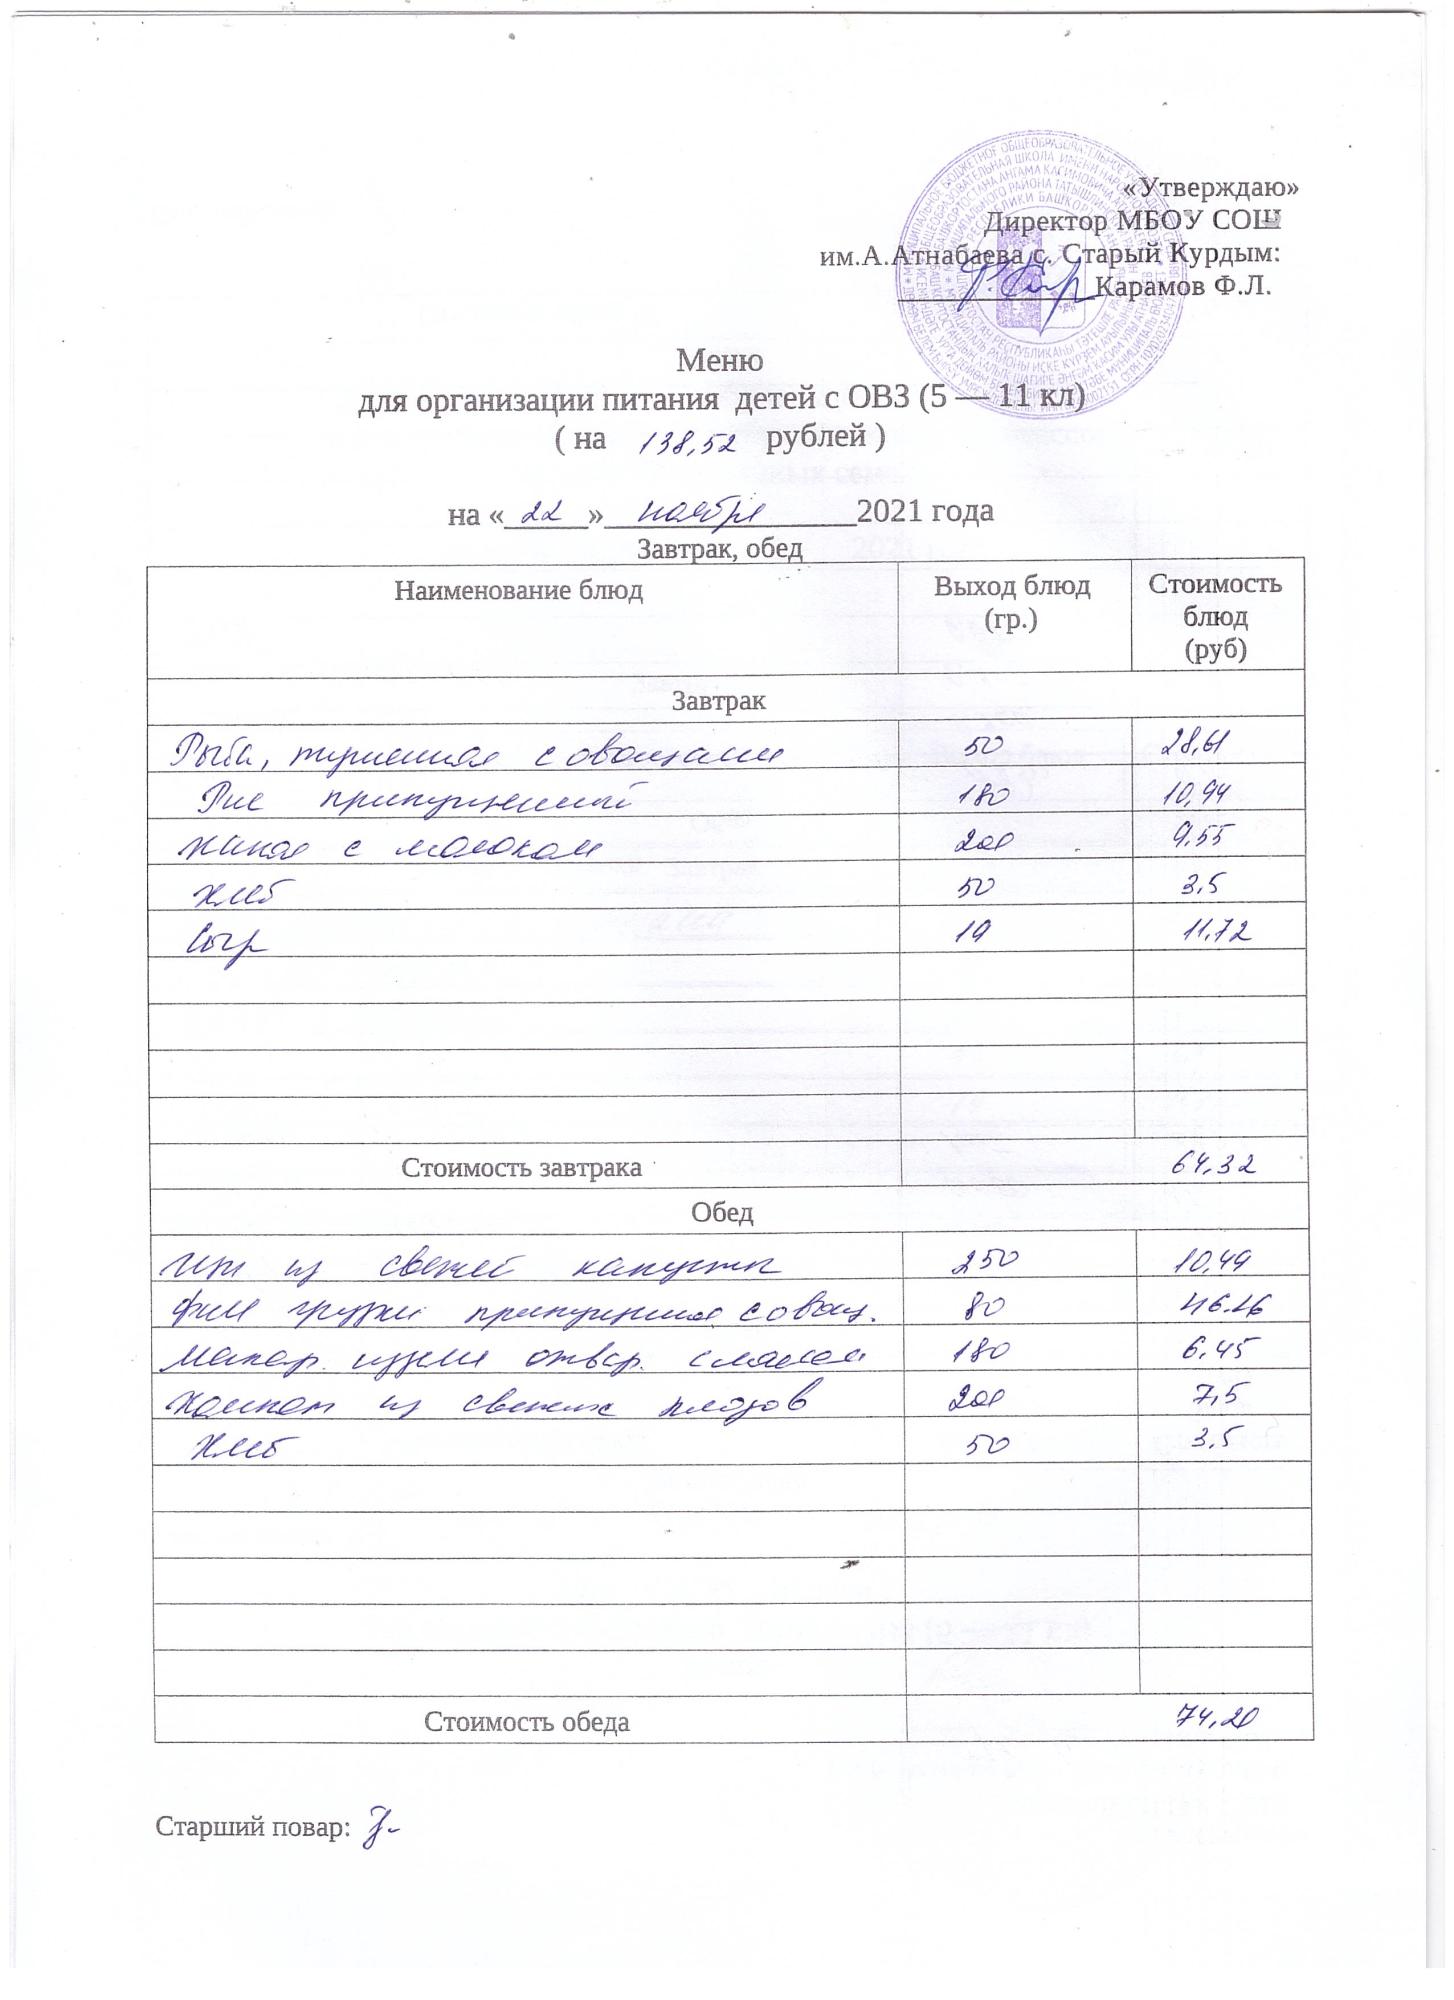 «Утверждаю»
Директор МБОУ СОШ
им.А.Атнабаева с. Старый Курдым:
Карамов Ф.Л.
Меню
для организации питания детей с ОВЗ (5 — 11 кл)
( на 138,52 рублей )
на « 22 » ноября 2021 года
Завтрак, обед
Наименование блюд Выход блюд (гр.) Стоимость блюд (руб)
Завтрак
Рыба, тушенная с овощами 50 28,61
Рис припущенный 180 10,94
Какао с молоком 200 9,55
Хлеб 50 3,5
Сыр 19 11,72
Стоимость завтрака 64,32
Обед
Щи из свежей капусты 250 10,49
Филе грудки припущенное с овощ. 80 46.26
Макар. изделия отвар. с маслом 180 6,45
Компот из свежих плодов 200 7,5
Хлеб 50 3,5
Стоимость обеда 74,20
Старший повар: